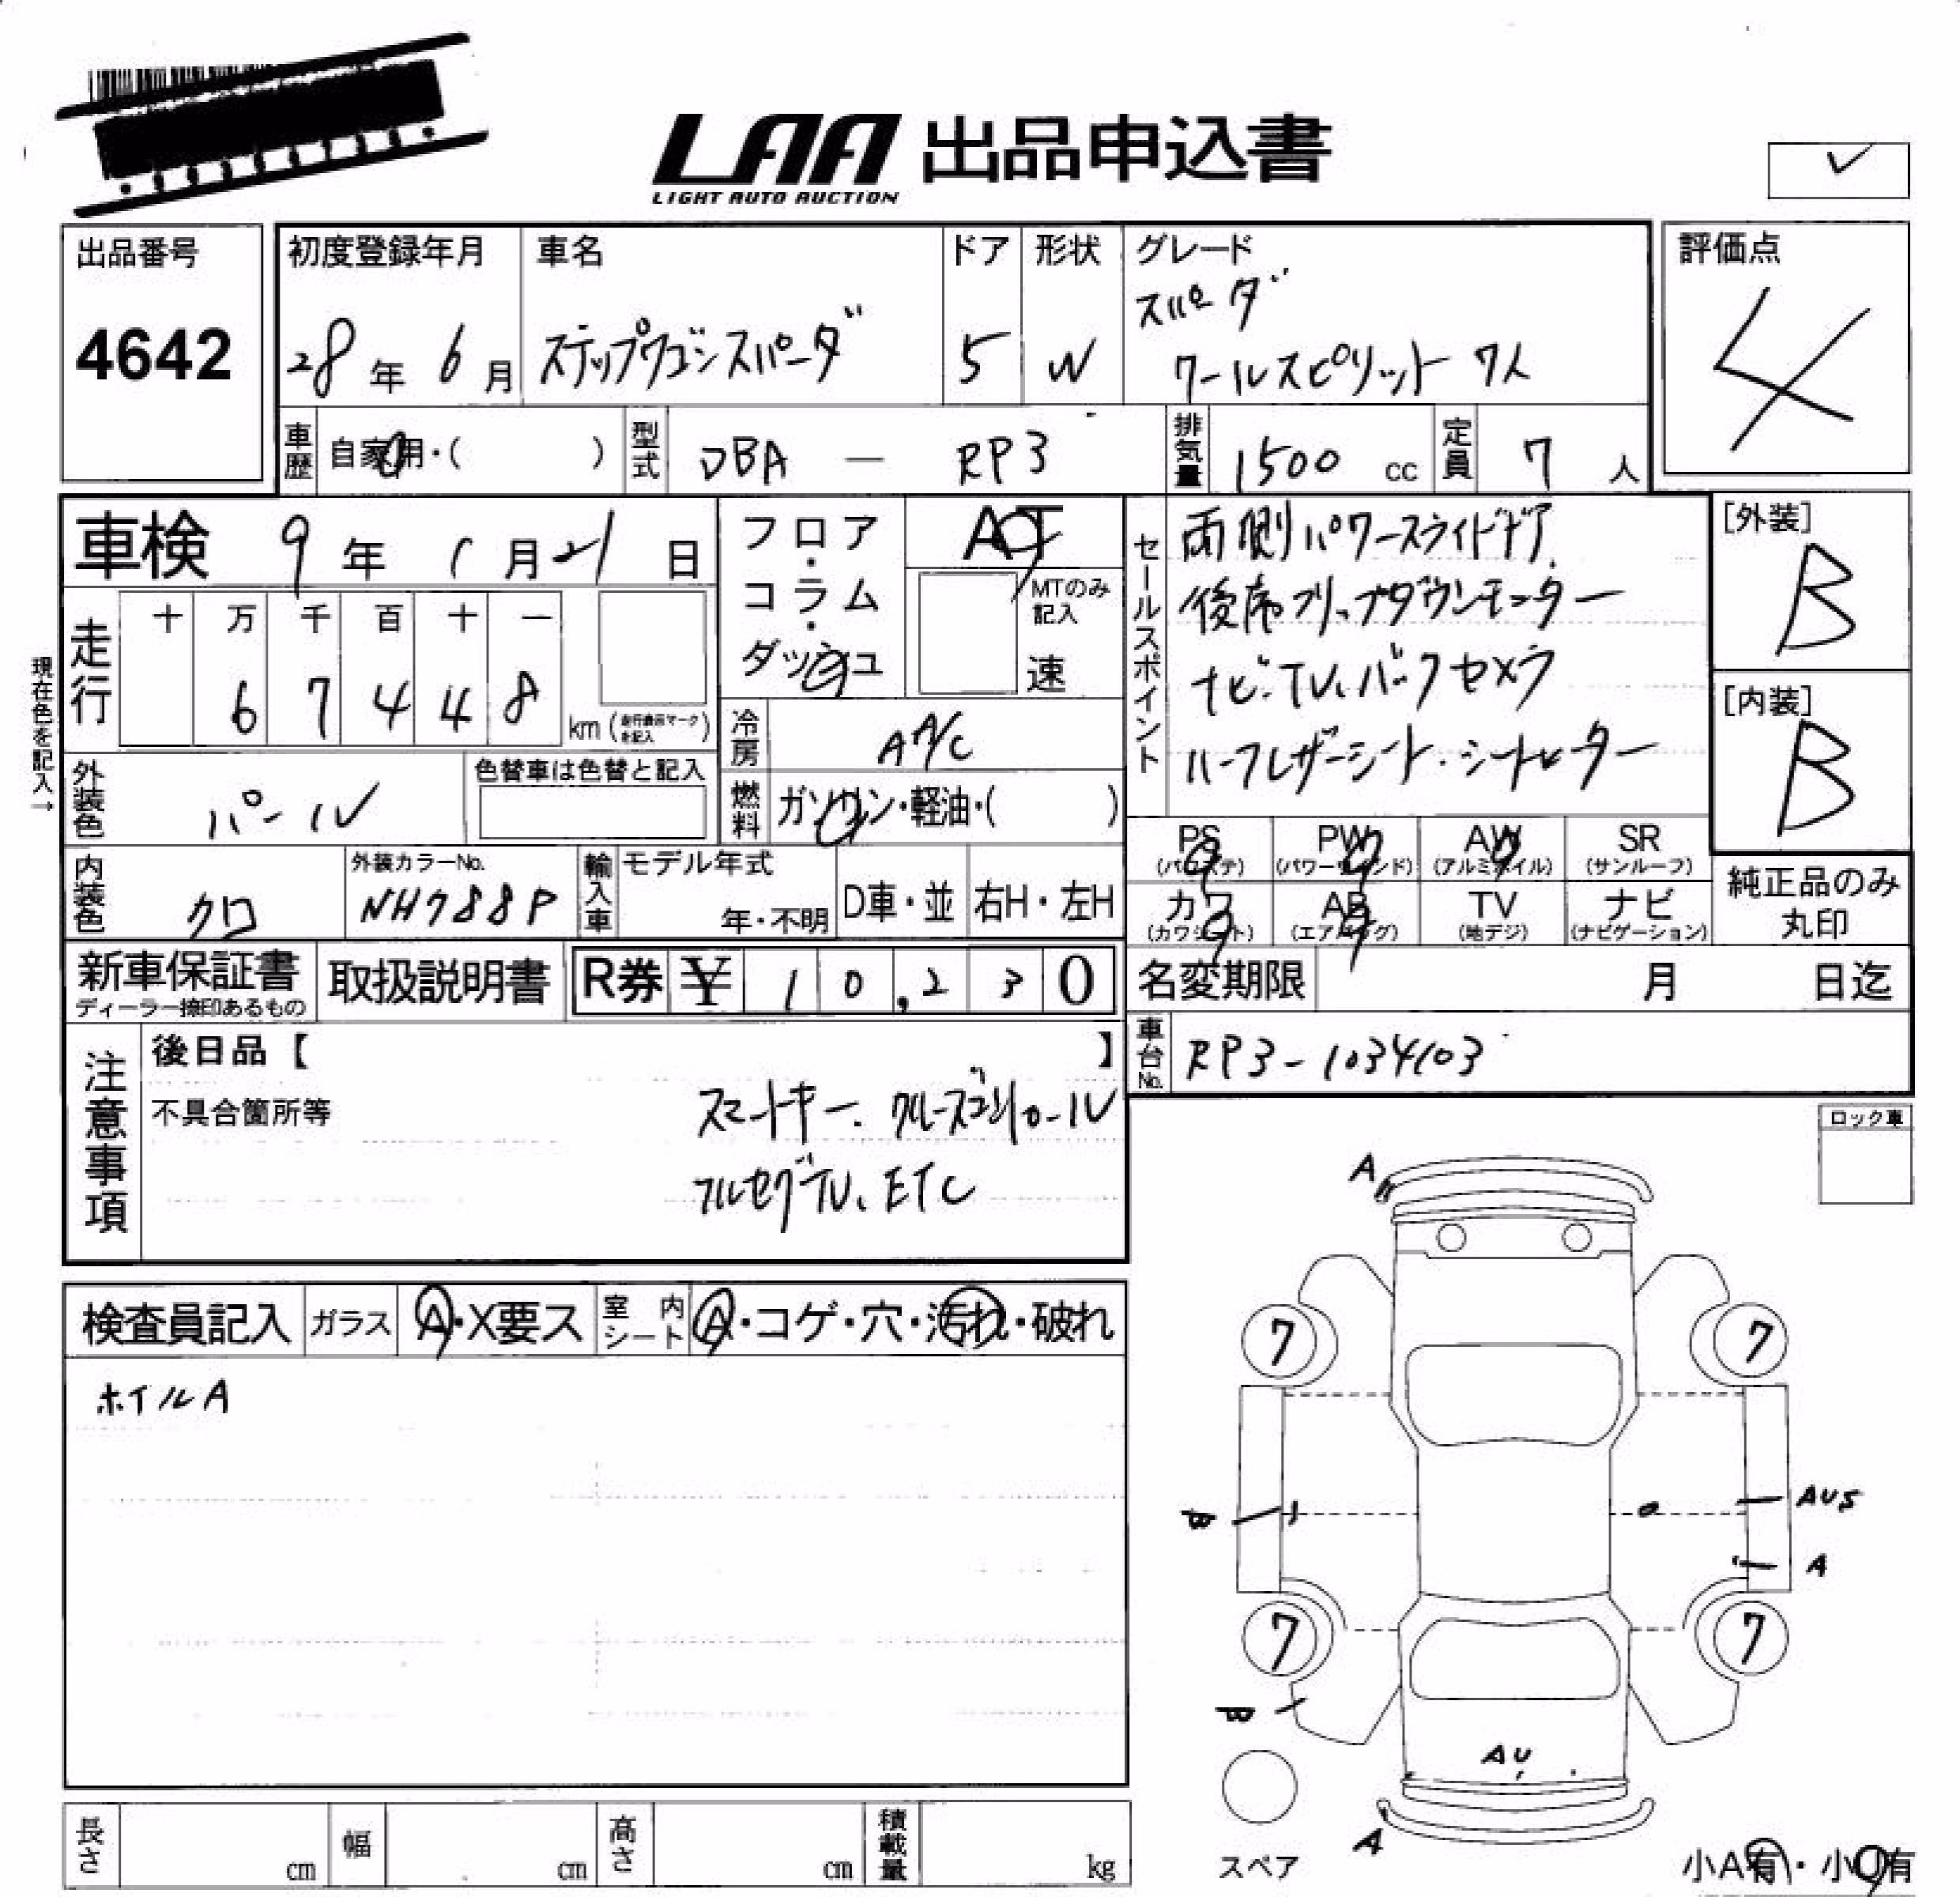 LAA 出品申込書
LIGHT AUTO AUCTION
出品番号
4642
初度登録年月
28年 6月
車名
ステップワゴンスパーダ
ドア
5
形状
W
グレード
スパーダ
クールスピリット 7人
評価点
4
車歴 自家用・( )
型式 DBA — RP3
排気量 1500 cc
定員 7 人
車検 9年 1月 21日
走行
十 万 千 百 十 一
6 7 4 4 8
km (走行表示マークを記入)
現在色を記入→
外装色 パール
色替車は色替と記入
内装色 クロ
外装カラーNo.
NH788P
フロア・コラム・ダッシュ
AT
MTのみ記入
速
冷房 AAC
燃料 ガソリン・軽油・( )
輸入車 モデル年式
年・不明
D車・並
右H・左H
セールスポイント
両側パワースライドドア
後席フリップダウンモニター
ナビ・TV、バックカメラ
ハーフレザーシート・シートヒーター
[外装]
B
[内装]
B
PS (パワステ)
PW (パワーウィンド)
AW (アルミホイル)
SR (サンルーフ)
カワ (カワシート)
AB (エアバッグ)
TV (地デジ)
ナビ (ナビゲーション)
純正品のみ丸印
新車保証書
ディーラー捺印あるもの
取扱説明書
R券 ¥ 10,230
名変期限 月 日迄
車台No. RP3-1034103
注意事項
後日品【 】
不具合箇所等
スマートキー、クルーズコントロール
フルセグTV、ETC
ロック車
検査員記入
ガラス A・X要ス
室内シート A・コゲ・穴・汚れ・破れ
ホイルA
A
7
7
B
AUS
A
7
7
B
AU
A
スペア
小A有・小U有
長さ cm
幅 cm
高さ cm
積載量 kg